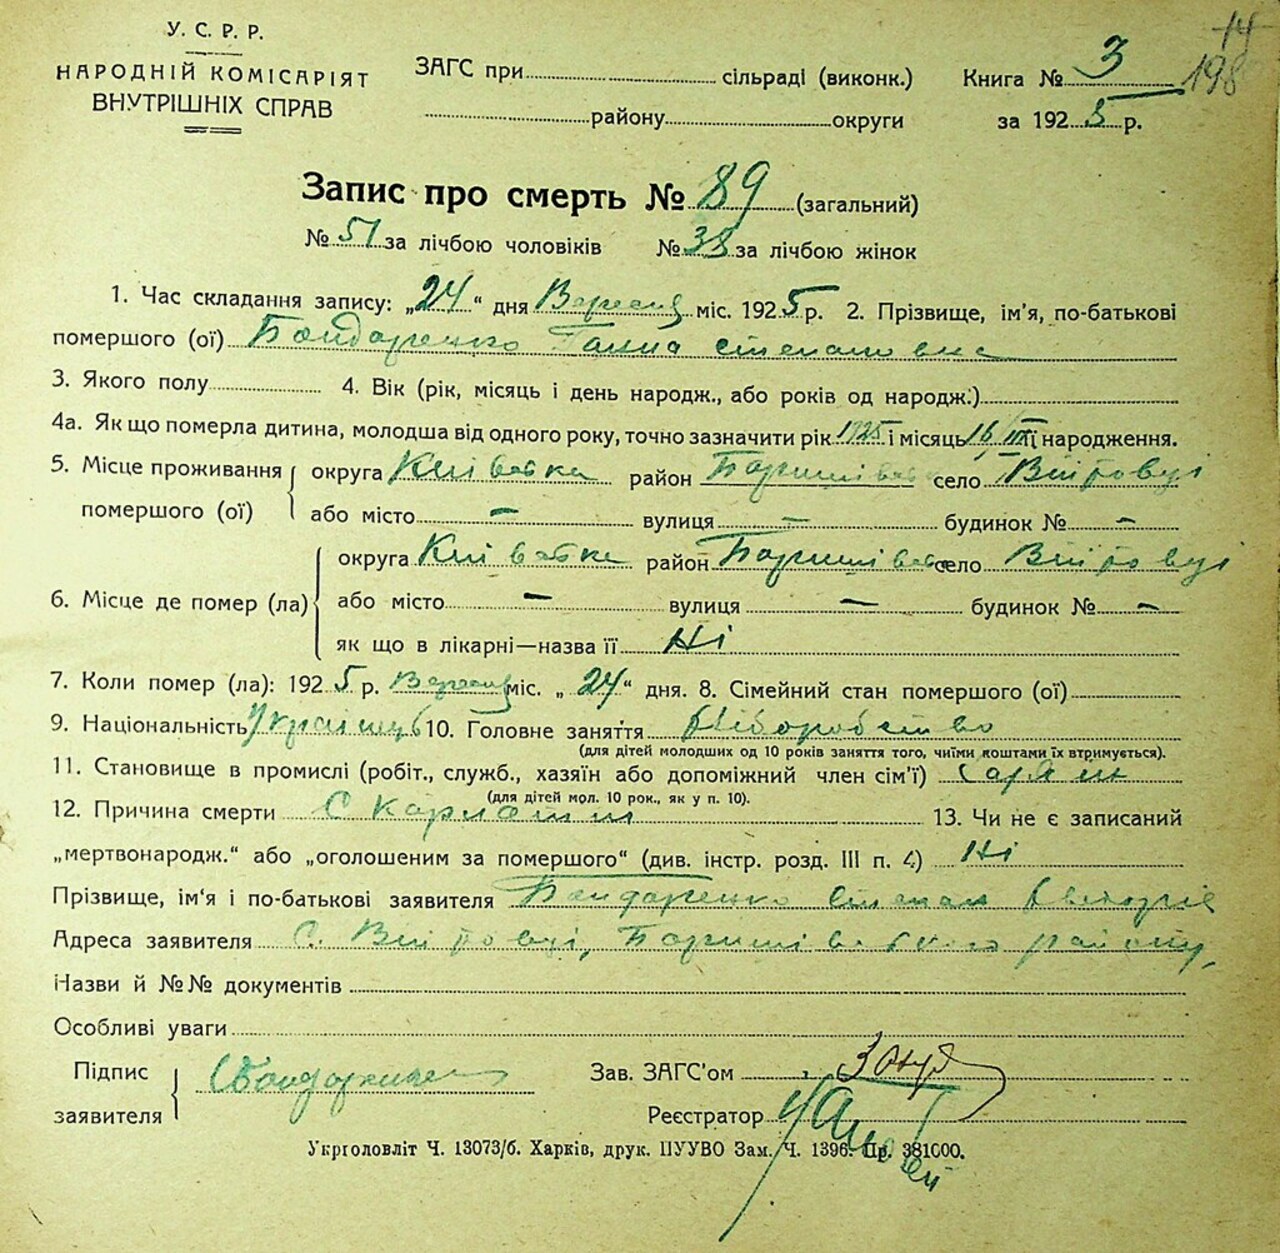 У. С. Р. Р.
НАРОДНІЙ КОМІСАРІЯТ
ВНУТРІШНІХ СПРАВ
ЗАГС при сільраді (виконк.)
району округи
Книга № 3
за 1925 р.
14
198
Запис про смерть № 89 (загальний)
№ 51 за лічбою чоловіків № 38 за лічбою жінок
1. Час складання запису: „24“ дня Вересня міс. 1925 р. 2. Прізвище, ім'я, по-батькові
помершого (ої) Бондаренко Ганна Степановна
3. Якого полу 4. Вік (рік, місяць і день народж., або років од народж.)
4а. Як що померла дитина, молодша від одного року, точно зазначити рік 1925 і місяць 16/III її народження.
5. Місце проживання помершого (ої) округа Київська район Баришівськ село Війтовці
або місто — вулиця — будинок № —
6. Місце де помер (ла) округа Київська район Баришівськ село Війтовці
або місто — вулиця — будинок № —
як що в лікарні—назва її Ні
7. Коли помер (ла): 1925 р. Вересня міс. „24“ дня. 8. Сімейний стан помершого (ої)
9. Національність 10. Головне заняття Хліборобство
(для дітей молодших од 10 років заняття того, чиїми коштами їх втримується).
11. Становище в промислі (робіт., служб., хазяїн або допоміжний член сім'ї)
(для дітей мол. 10 рок., як у п. 10).
12. Причина смерти Скарлатин 13. Чи не є записаний
„мертвонародж.“ або „оголошеним за помершого“ (див. інстр. розд. III п. 4) Ні
Прізвище, ім'я і по-батькові заявителя Бондаренко Степан
Адреса заявителя С. Війтовці, Баришівського району,
Назви й №№ документів
Особливі уваги
Підпис заявителя
Зав. ЗАГС'ом
Реєстратор
Укрголовліт Ч. 13073/б. Харків, друк. ПУУВО Зам. Ч. 1396. Пр. 381000.